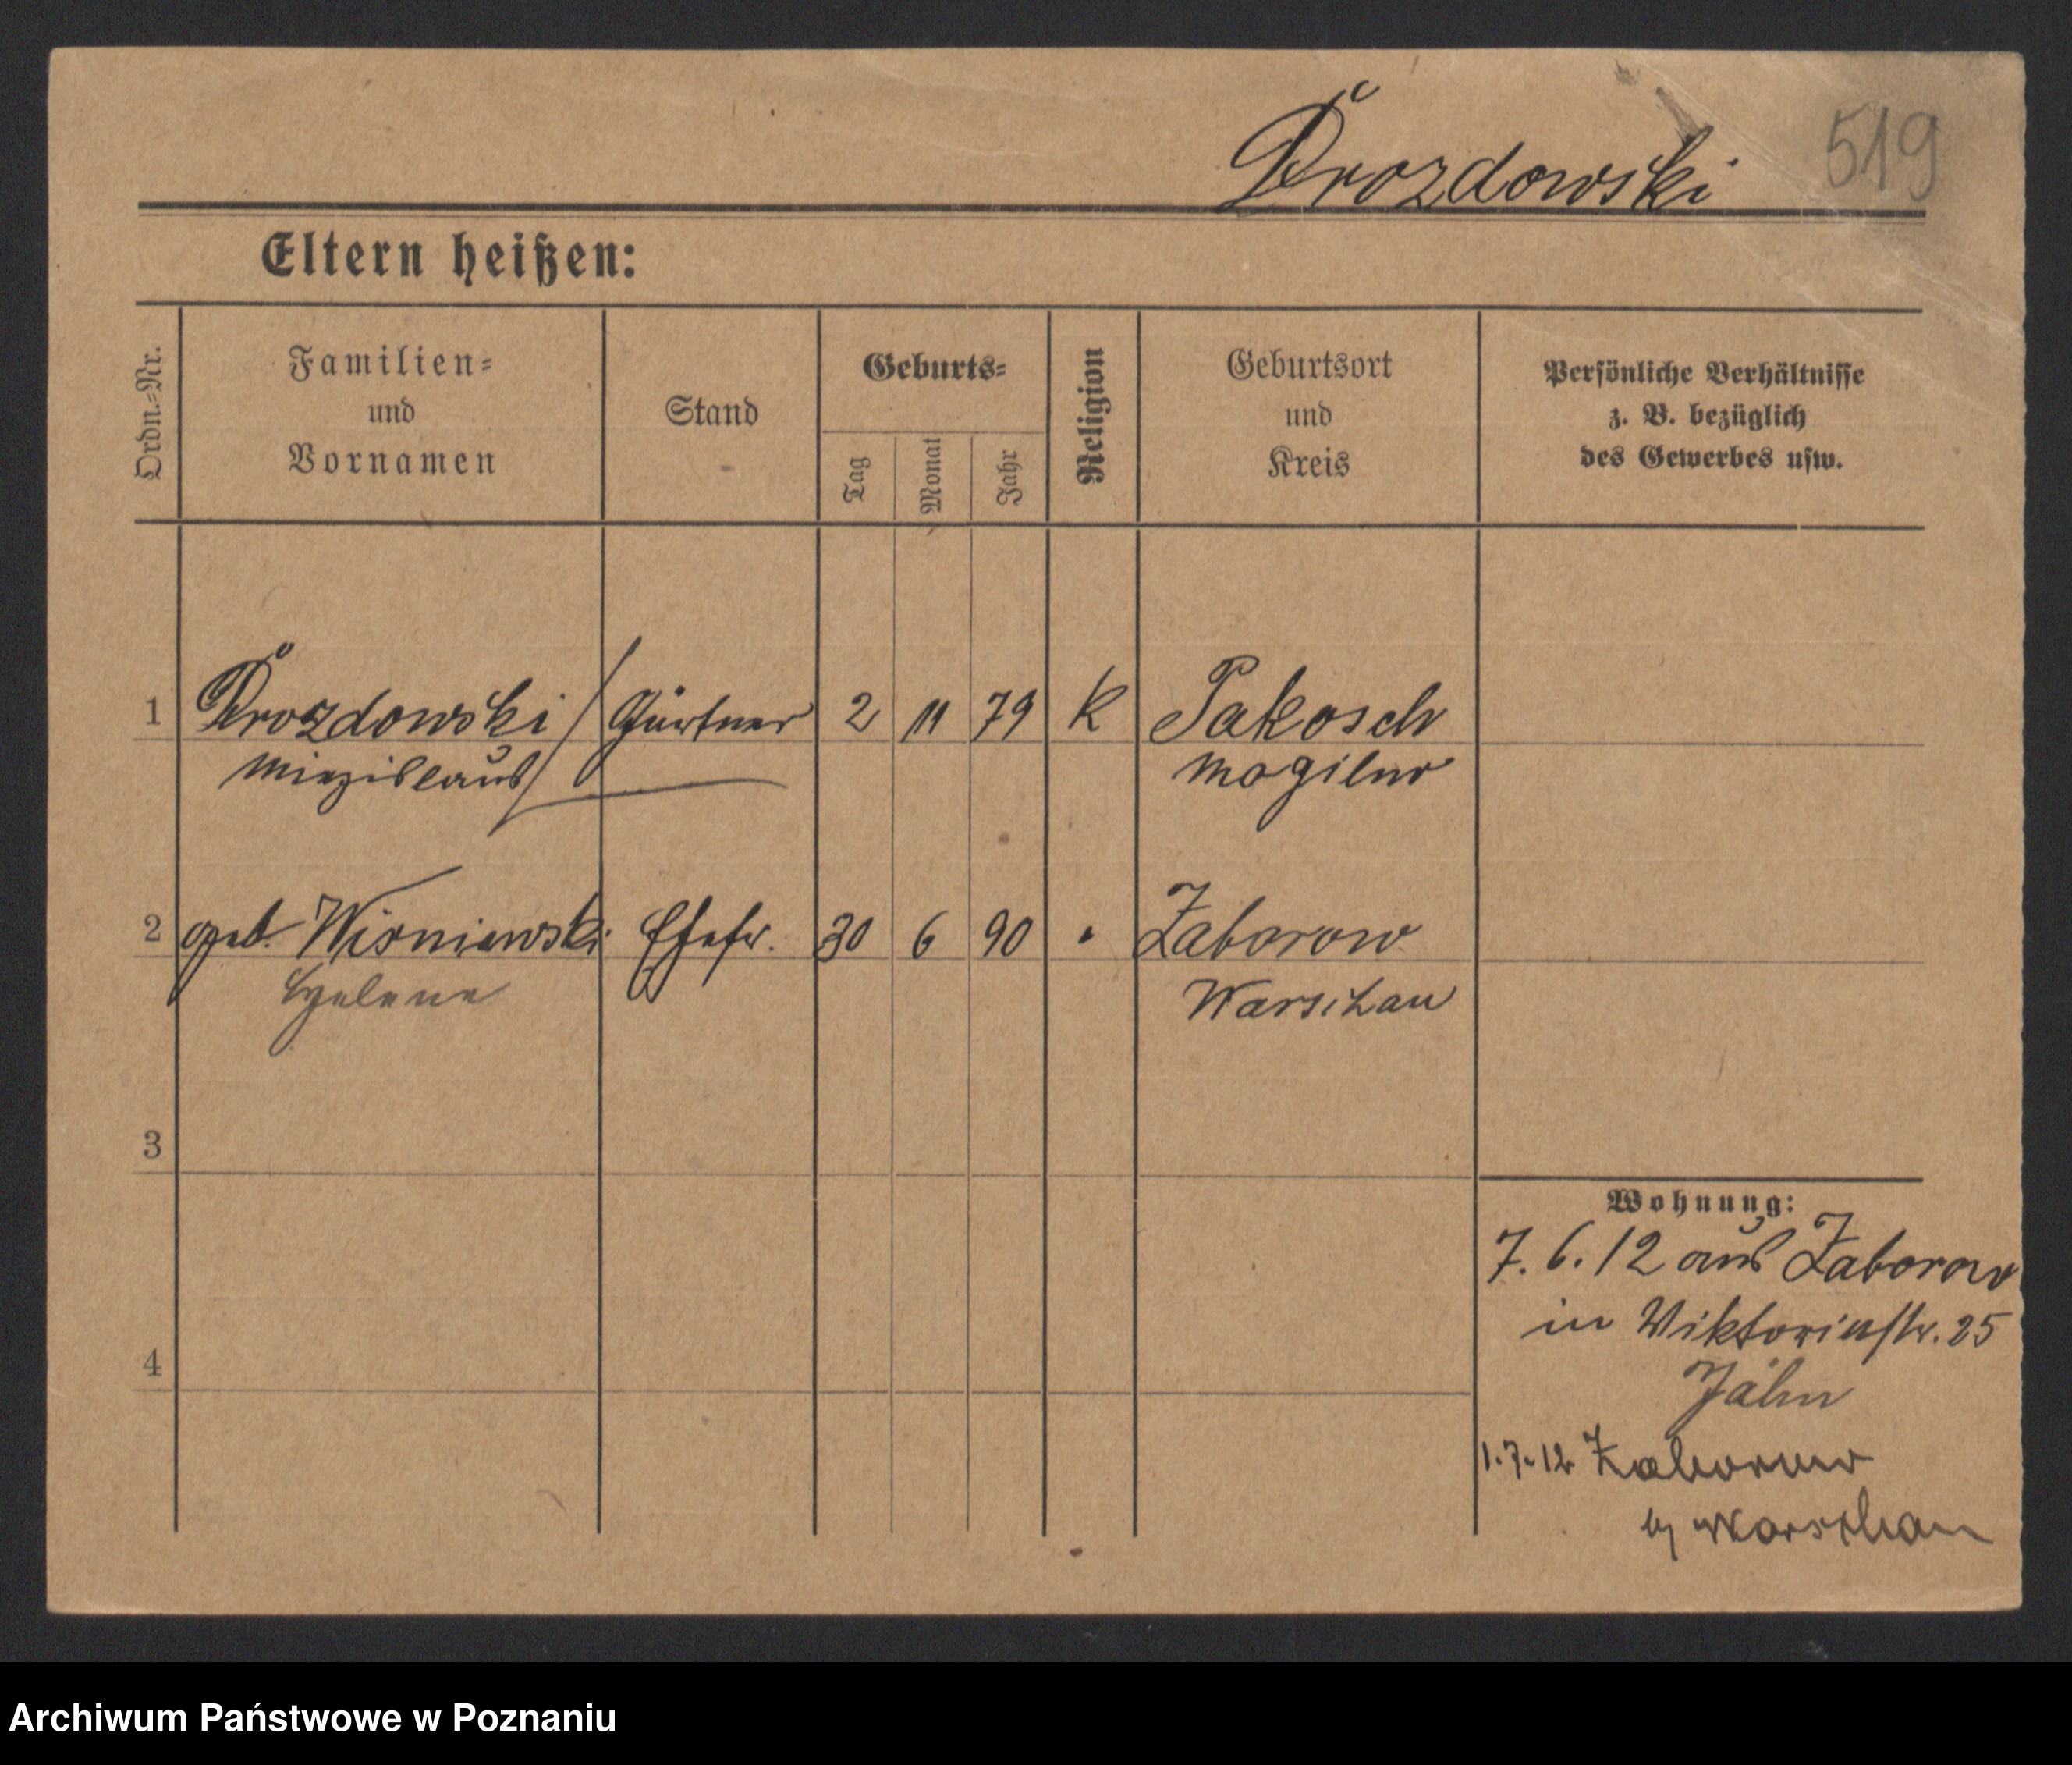 Drozdowski 519
Eltern heißen:
Ordn.-Nr.
Familien-
und
Vornamen
Stand
Geburts-
Tag
Monat
Jahr
Religion
Geburtsort
und
Kreis
Persönliche Verhältnisse
z. B. bezüglich
des Gewerbes usw.
1 Drozdowski Gärtner 2 11 79 K Pakosch
Miezislaus Mogilno
2 geb. Wisniewski Ehefr. 30 6 90 " Zaborow
Helene Warschau
3
4
Wohnung:
7.6.12 aus Zaborow
in Viktoriastr. 25
Jähn
1.7.12 Zaborow
b/ Warschau
Archiwum Państwowe w Poznaniu